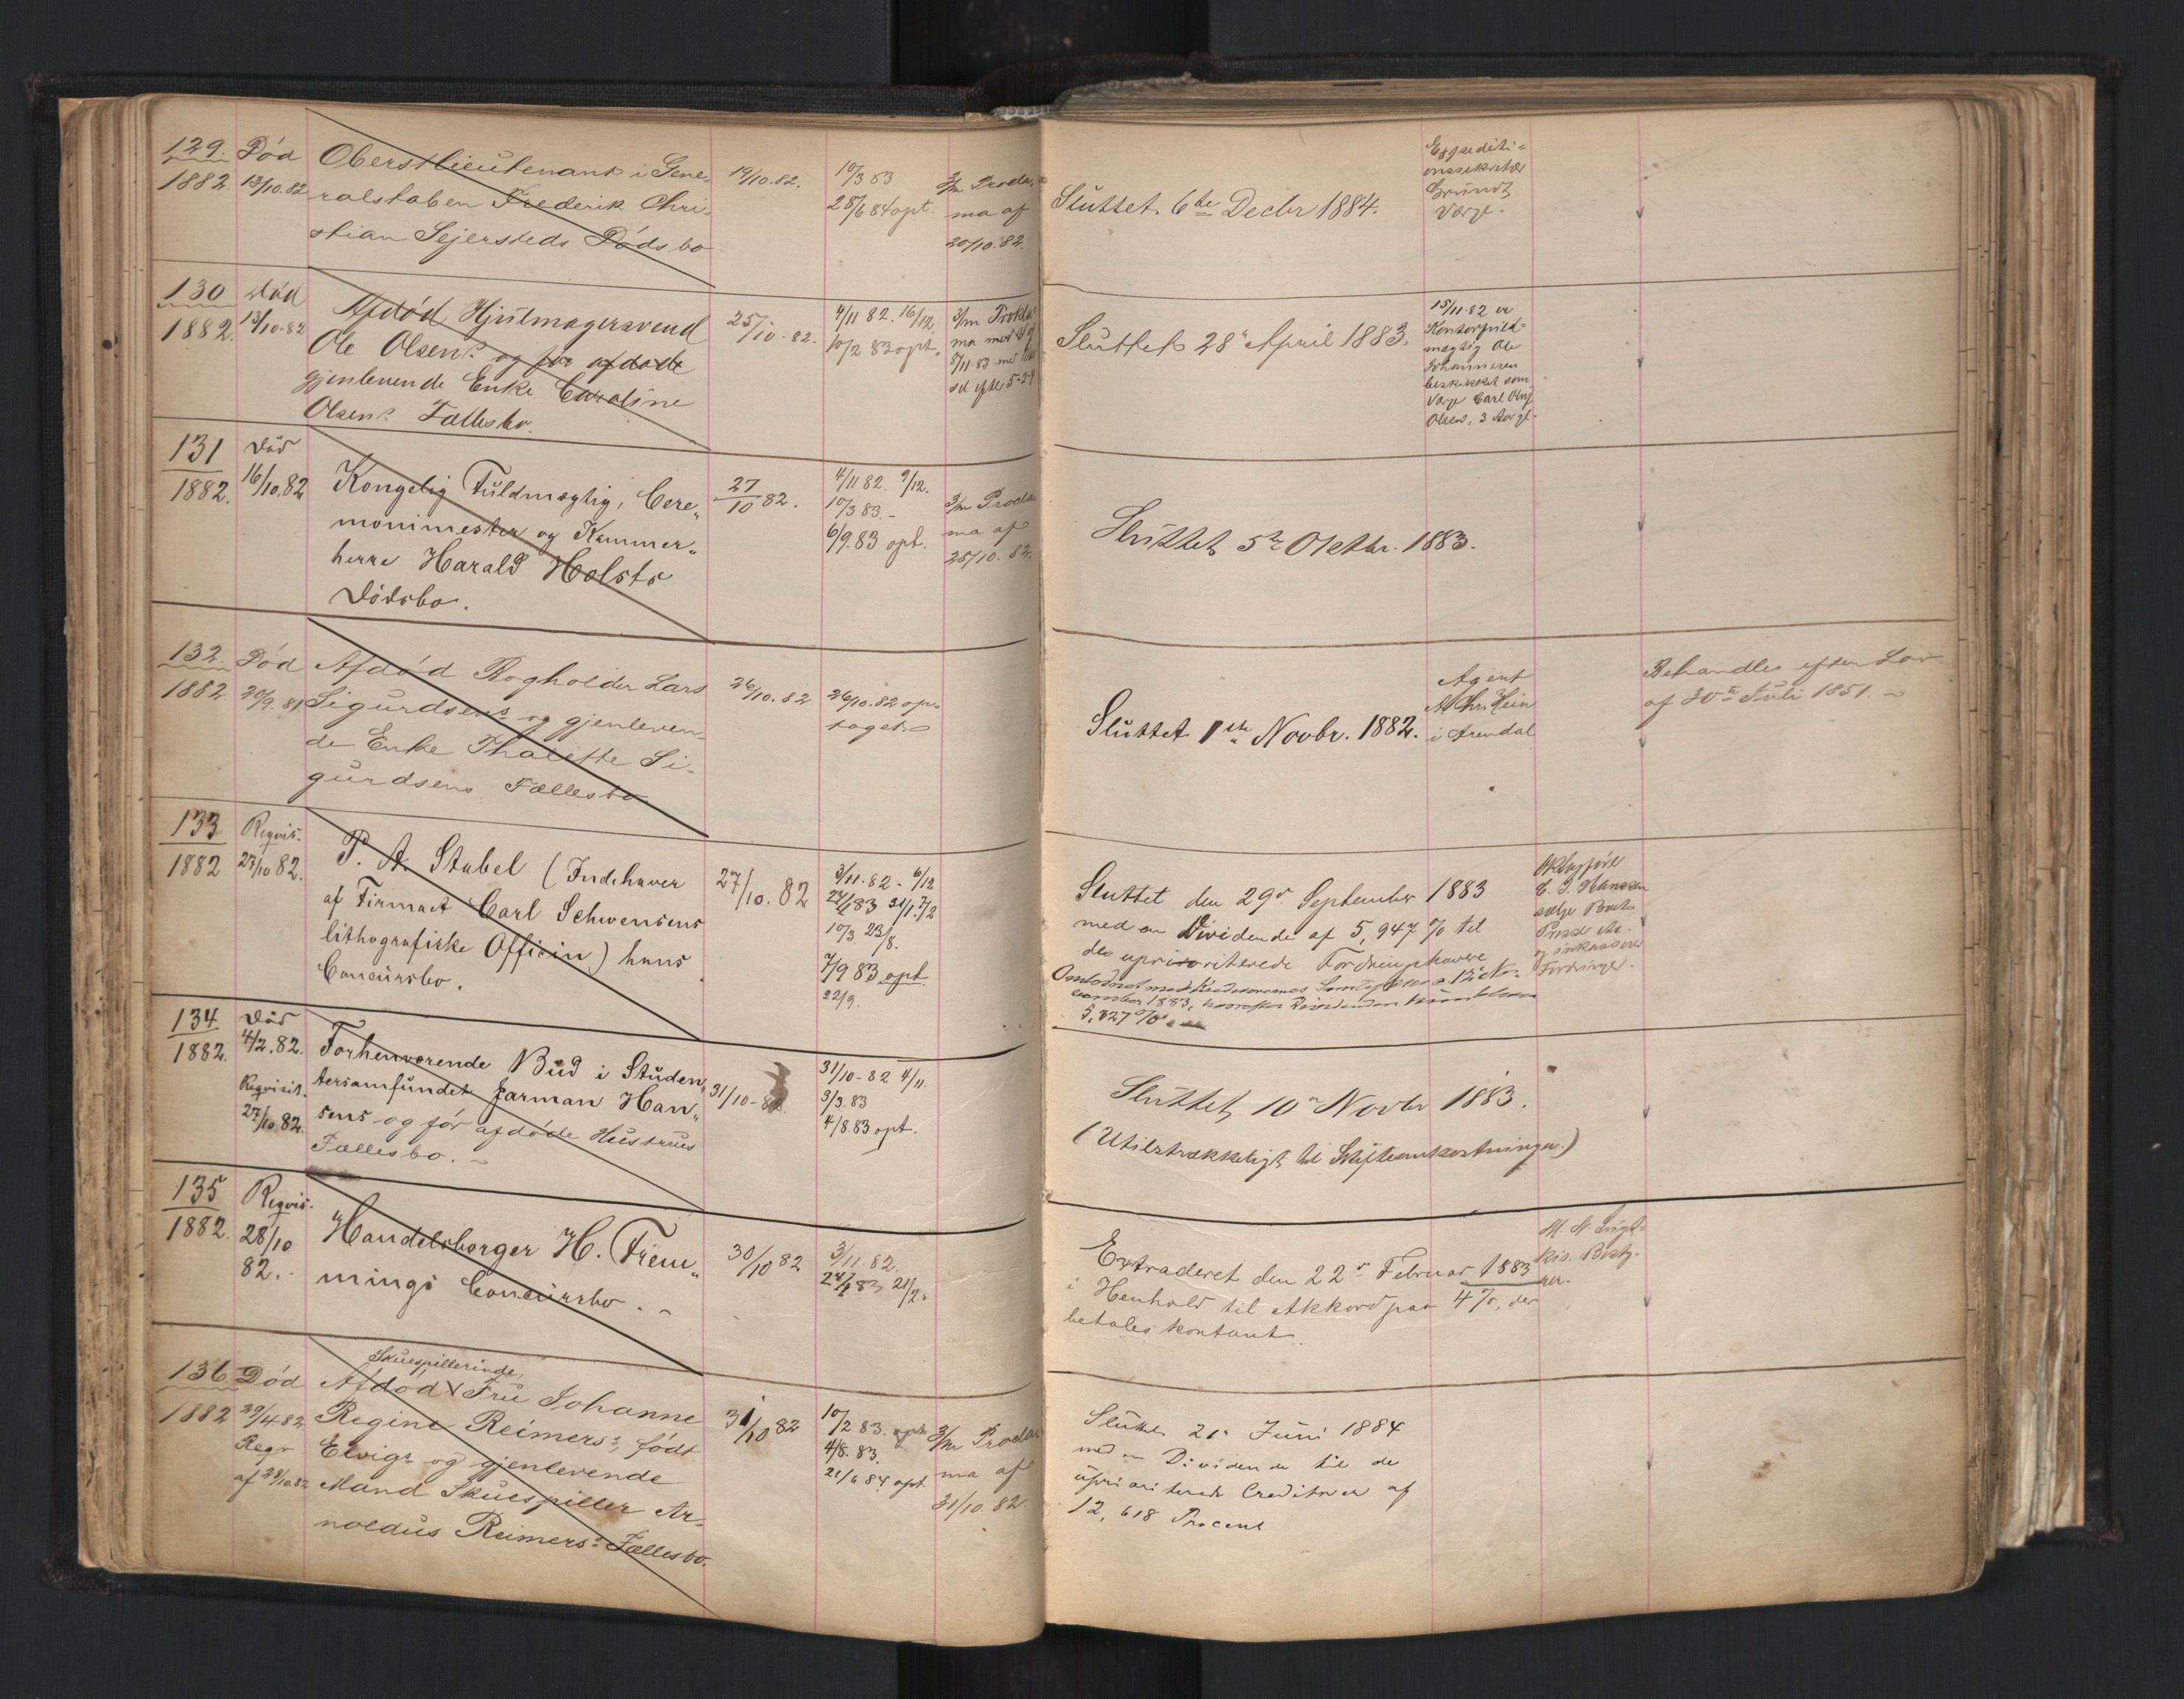 129. Død Oberstlieutenant i Gene-
1882. 13/10.82 ralstaben Frederik Chri-
stian Sejersteds Dødsbo
19/10.82.
10/3 83
28/6 84 opt.
3/m Procla-
ma af
20/10.82.
Sluttet 6te Decbr 1884.
Expediti-
onssekretær
Grundt
Værge.
130 Død Afdød Hjulmagersvend
1882. 13/10-82 Ole Olsens og før afdøde
gjenlevende Enke Caroline
Olsens Fællesbo.
25/10.82.
4/11 82. 16/12.
10/2 83 opt.
3/m Prokla-
ma
Sluttet 28' April 1883.
15/11.82 er
Kontorfuld-
mægtig Ole
Johannesen
beskikket som
Værge Carl Oluf
Olsen,
131 Død
1882. 16/10.82 Kongelig Fuldmægtig, Cere-
monimester og Kammer-
herre Harald Holsts
Dødsbo.
27/10 82.
4/11 82. 9/12.
10/3 83.-
6/9.83 opt.
3/m Procla-
ma af
25/10.82.
Sluttet 5te Oktbr. 1883.
132. Død Afdød Bogholder Lars
1882 20/9.81 Sigurdsens og gjenleven-
de Enke Thalette Si-
gurdsens Fællesbo
26/10.82
26/10.82 op-
taget.
Sluttet 1ste Novbr. 1882.
Agent
Hein
i Arendal
Behandles efter Lov
af 30te Juli 1851.
133 Reqvis.
1882 27/10 82. P. A. Stabel (Indehaver
af Firmaet Carl Schwensens
lithografiske Officin) hans
Concursbo.
27/10.82
3/11.82. 6/12
10/3 23/8.
7/9 83 opt.
22/9.
Sluttet den 29' September 1883
med en Dividende af 5,947 % til
de uprioriterede Fordringshavere
1883, hvorefter Dividenden
5,827 %
C. J. Hanssen
sælge
og inkassere
Fordringer.
134 Død
1882. 4/2.82. Forhenværende Bud i Studen-
Reqvisit. tersamfundet Jarman Han-
27/10 82. sens og før afdøde Hustrues
Fællesbo.
31/10-82.
31/10-82 4/11.
3/3.83
4/8.83 opt.
Sluttet 10' Novbr 1883.
(Utilstrækkeligt til Skifteomkostninger.)
135 Reqvis.
1882. 28/10 Handelsborger H. Flem-
82.- mings Concursbo.
30/10 82
3/11.82.
Extraderet den 22' Februar 1883
i Henhold til Akkord paa 4 %, der
betales kontant.
136. Død Afdød Skuespillerinde, Fru Johanne
1882 29/4 82 Regine Reimers, født
Reqv Elvigs og gjenlevende
af 28/10 82 Mand Skuespiller Ar-
noldus Reimers Fællesbo.
31/10 82
10/2 83. opt.
4/8.83.
21/6 84 opt
3/m Procla-
ma af
31/10.82.
Sluttet 21' Juni 1884
med en Dividende til de
uprioriterede Creditorer af
12,618 Procent